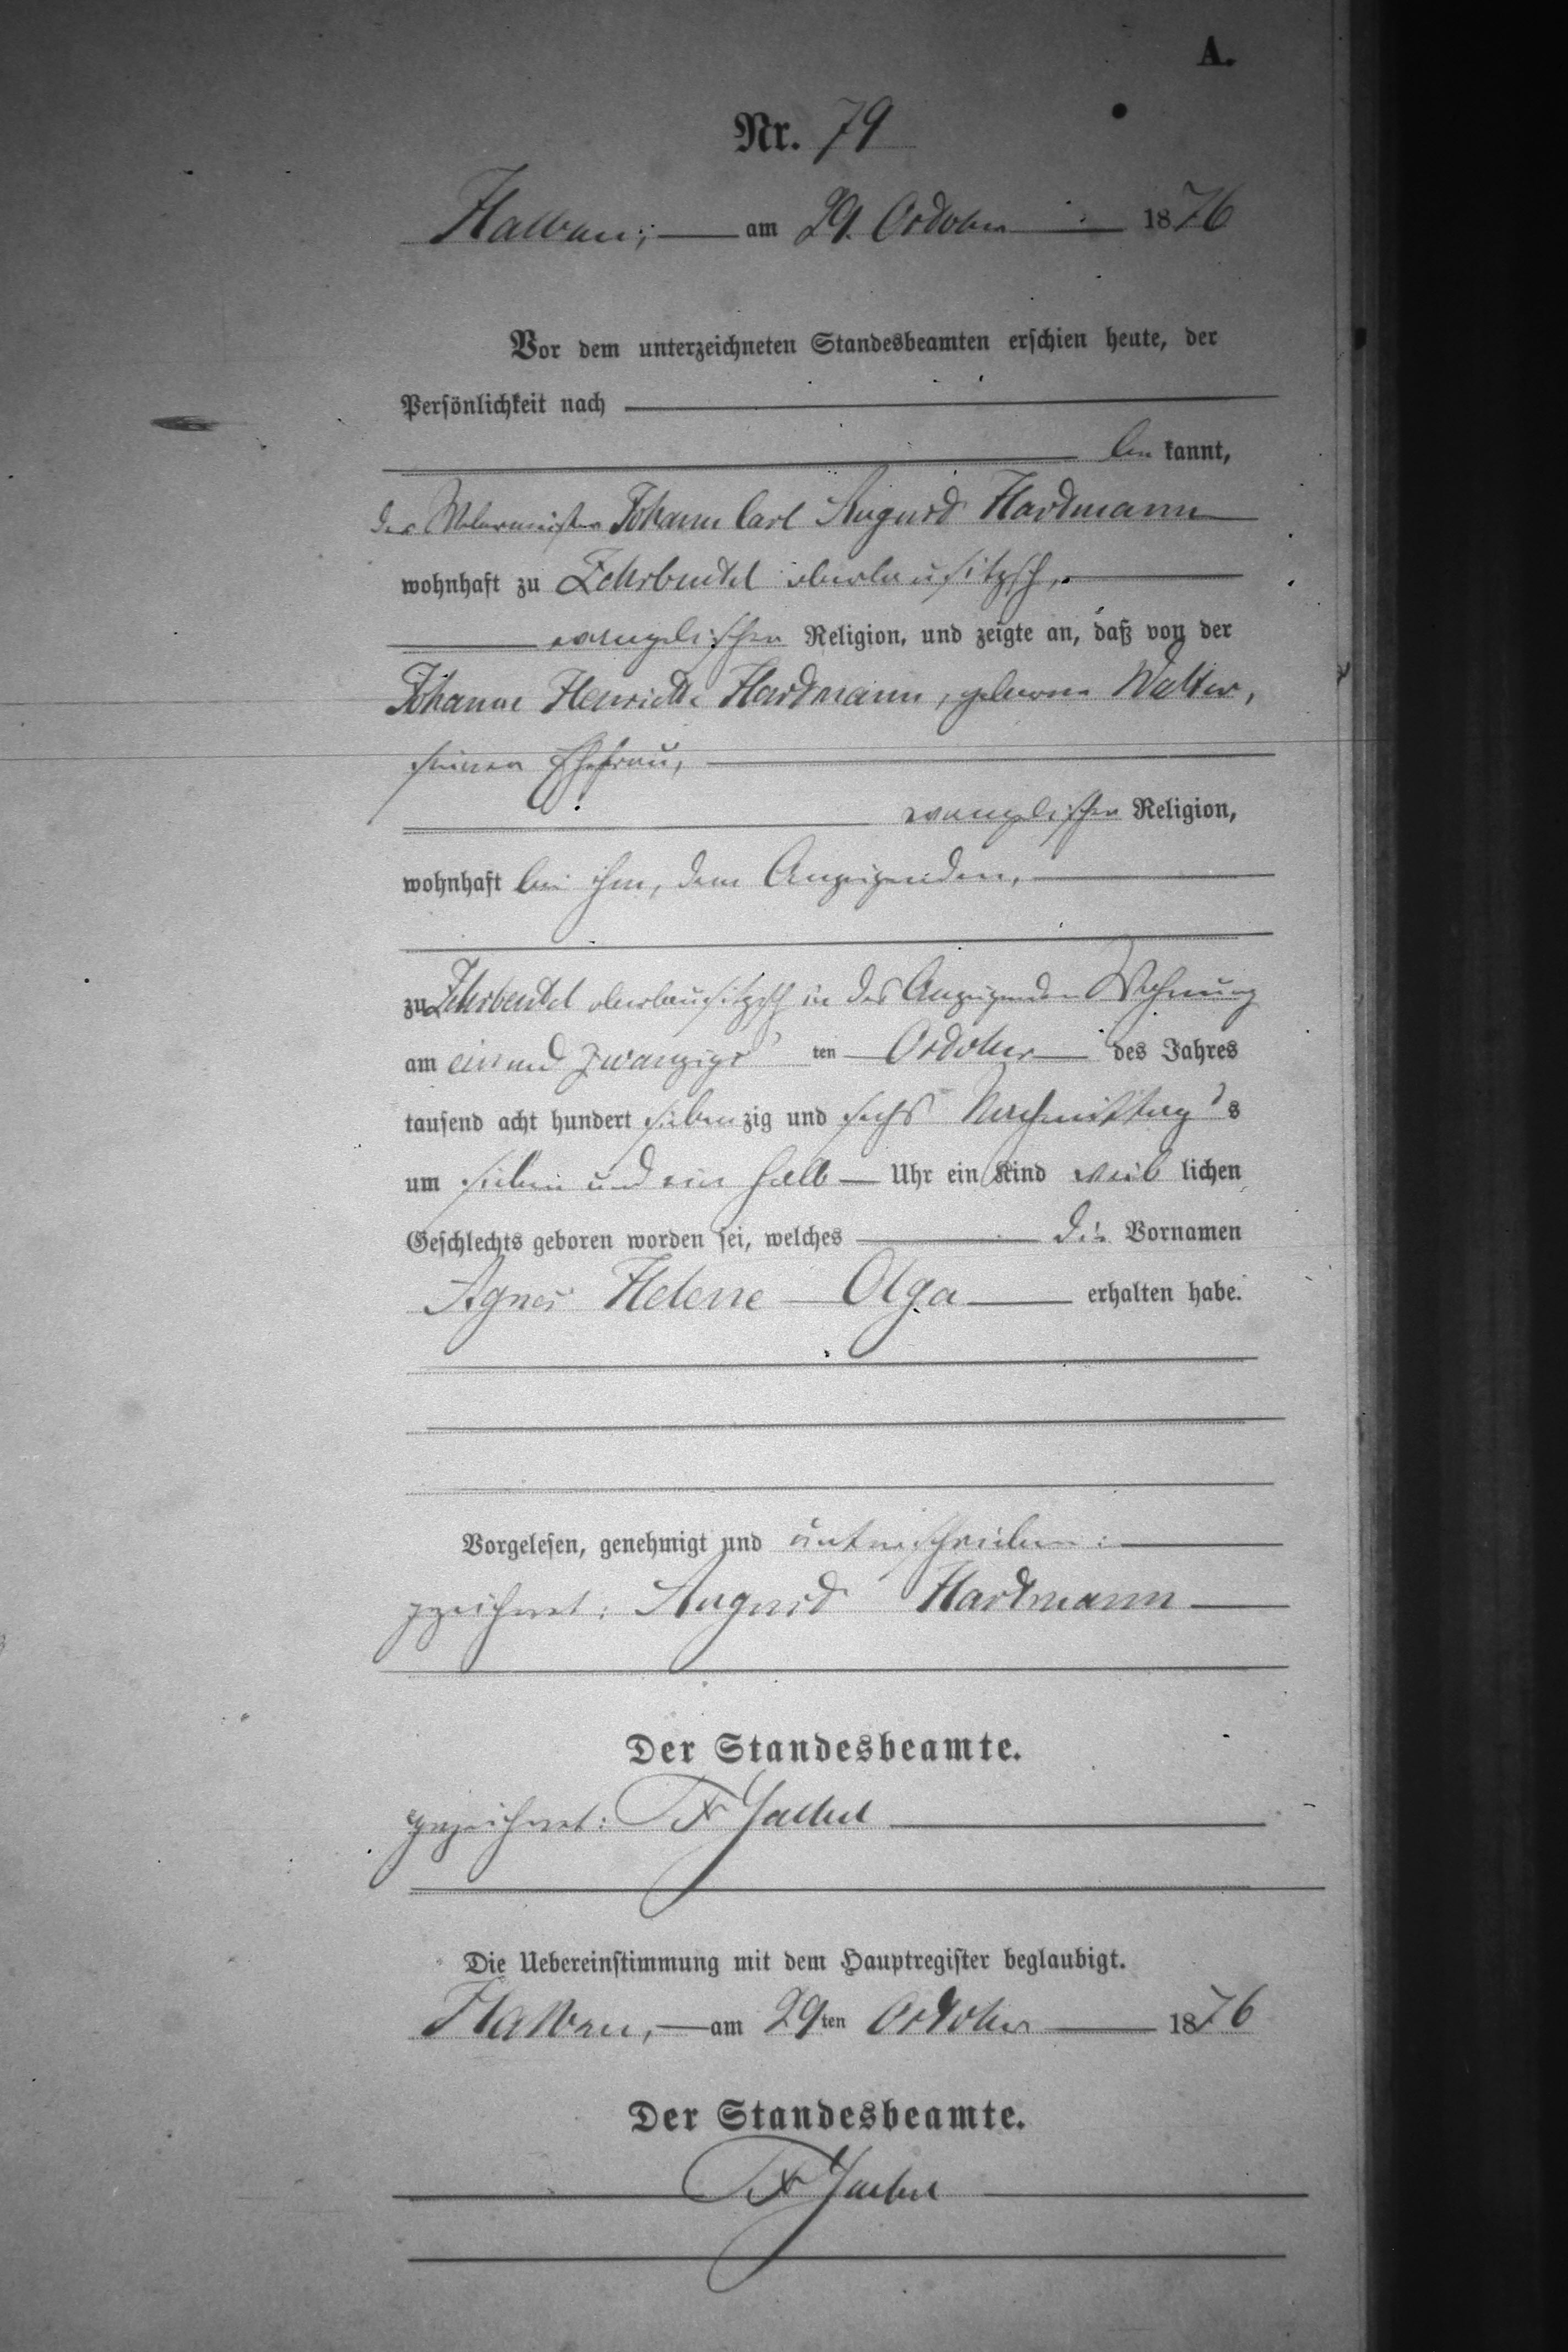 A.
Nr. 79
Halbau, am 29. October 1876
Vor dem unterzeichneten Standesbeamten erschien heute, der
Persönlichkeit nach
be kannt,
der Johann Carl August Hartmann
wohnhaft zu Zehrbeutel oberlausitzsch,
evangelischer Religion, und zeigte an, daß von der
Johanne Henriette Hartmann, geborne Walter,
seiner Ehefrau,
evangelischer Religion,
wohnhaft bei ihm, dem Anzeigenden,
zu Zehrbeutel oberlausitzsch in des Anzeigenden Wohnung
am einund zwanzigs ten October des Jahres
tausend acht hundert sieben zig und sechs Nachmittag s
um sieben und ein halb Uhr ein Kind weib lichen
Geschlechts geboren worden sei, welches die Vornamen
Agnes Helene Olga erhalten habe.
Vorgelesen, genehmigt und unterschrieben:
gezeichnet: August Hartmann
Der Standesbeamte.
gezeichnet:
Die Uebereinstimmung mit dem Hauptregister beglaubigt.
Halbau, am 29ten October 1876
Der Standesbeamte.